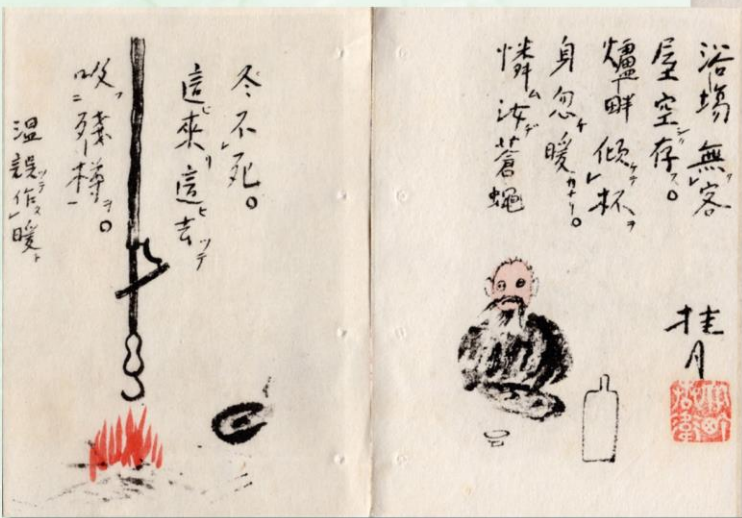 浴場無客
屋空存。
爐畔傾杯
身忽暖。
憐汝蒼蠅
冬不死。
這來這去
吸殘樽。
温誤作暖
桂月